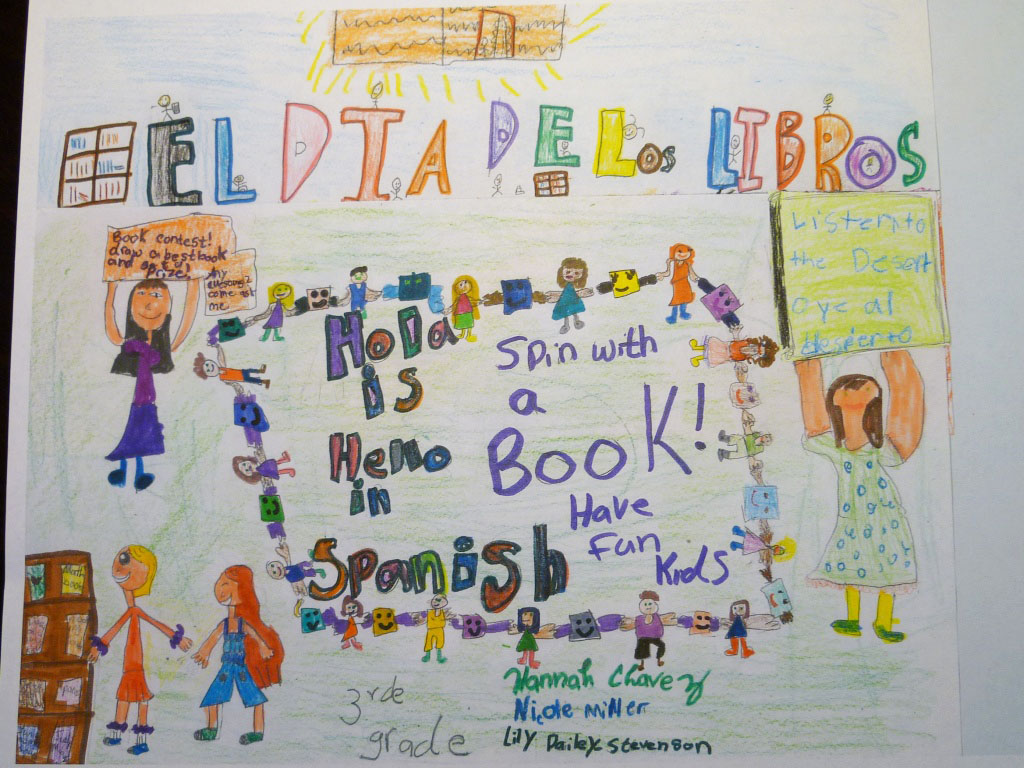 EL DIA DE Los LIBROS
Book contest!
draw a best book
and get a
Prize!
Any
questions?
come ask
me
Listen to
the Desert
oye al
desierto
Hola
is
Hello
in
Spanish
Spin with
a
Book!
Have
Fun
Kids
Math
book
3rde
grade
Hannah Chavez
Nicole Miller
Lily Dailey Stevenson